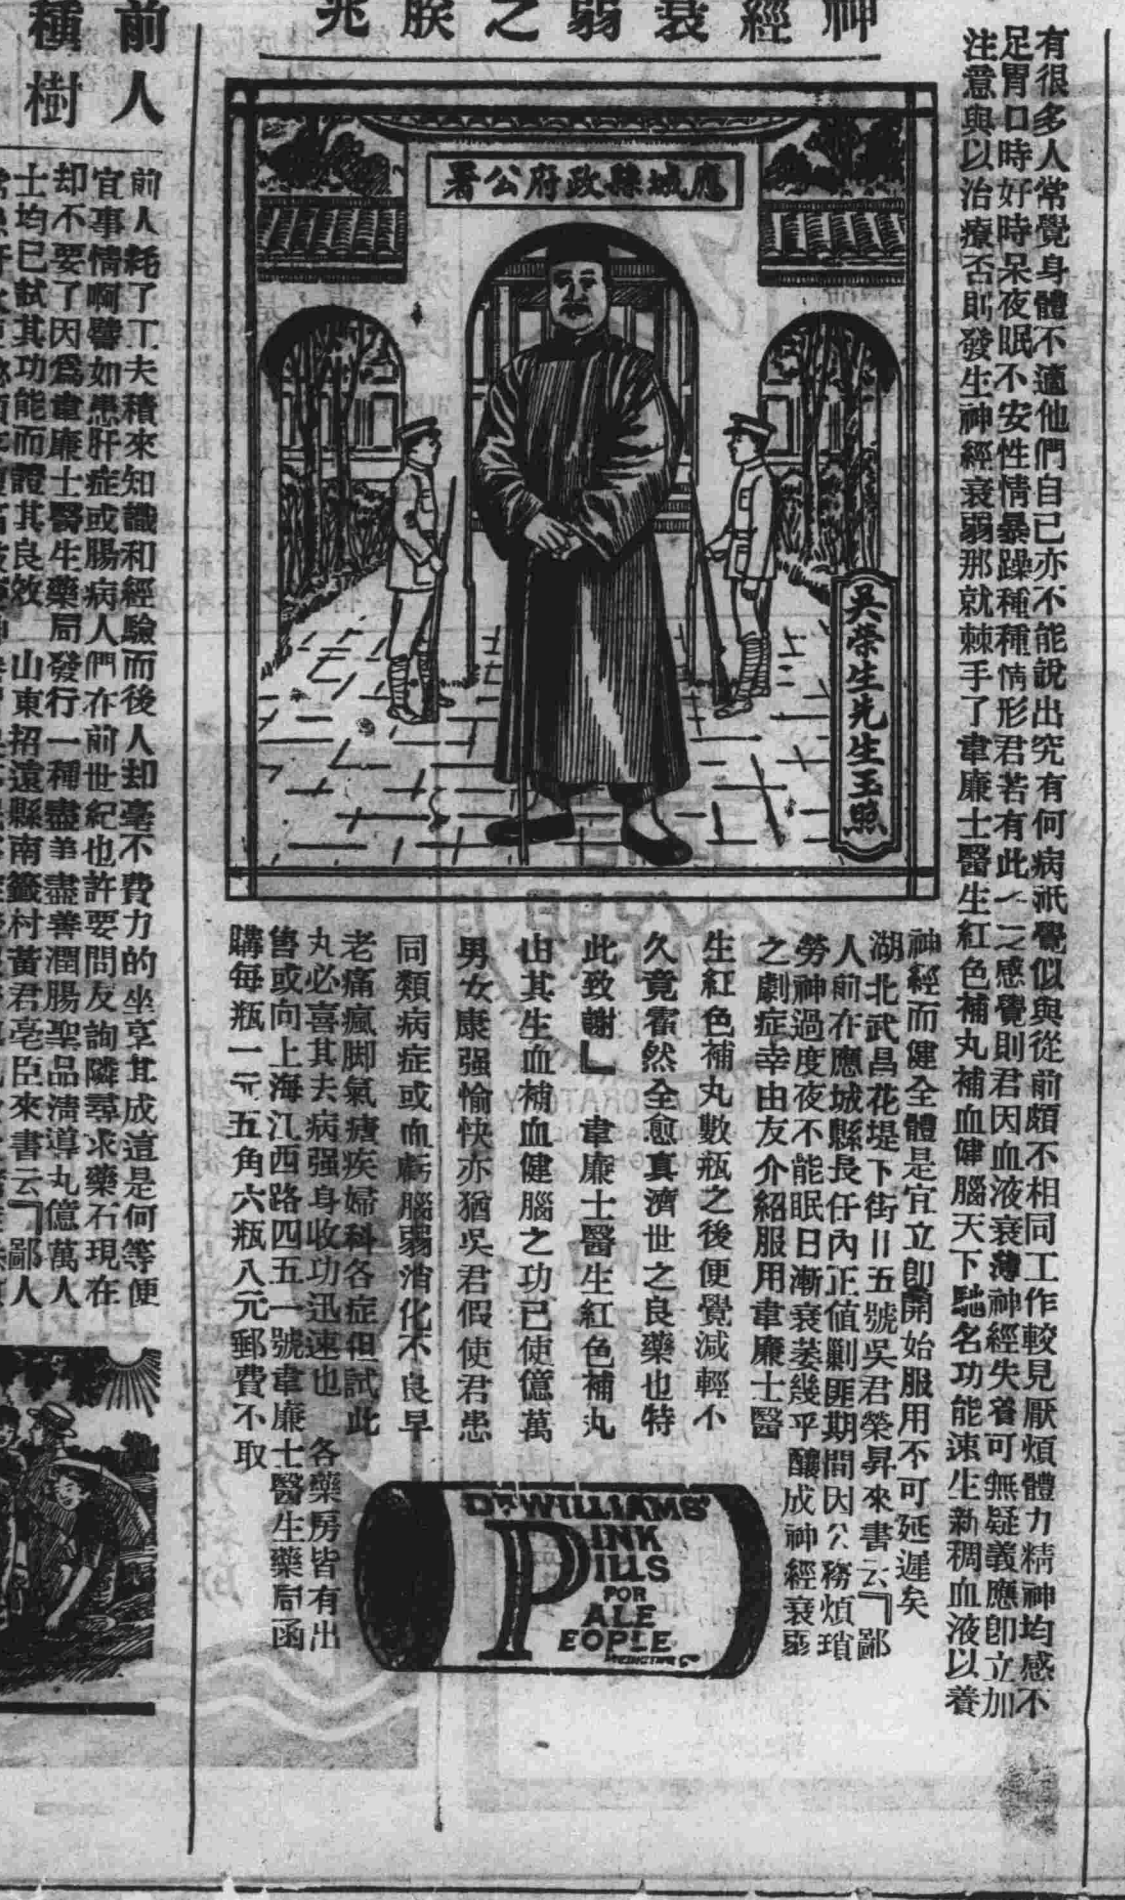 神經衰弱之朕兆
有很多人常覺身體不適他們自已亦不能說出究有何病祇覺似與從前頗不相同工作較見厭煩體力精神均感不
足胃口時好時呆夜眠不安性情暴躁種種情形君若有此一二之感覺則君因血液衰薄神經失養可無疑義應卽立加
注意與以治療否則發生神經衰弱那就棘手了韋廉士醫生紅色補丸補血健腦天下馳名功能速生新稠血液以養
應城縣政府公署
吳榮生先生玉照
神經而健全體是宜立卽開始服用不可延遲矣
湖北武昌花堤下街廿五號吳君榮昇來書云『鄙
人前在應城縣長任內正值剿匪期間因公務煩瑣
勞神過度夜不能眠日漸衰萎幾乎釀成神經衰弱
之劇症幸由友介紹服用韋廉士醫
生紅色補丸數瓶之後便覺減輕不
久竟霍然全愈真濟世之良藥也特
此致謝』 韋廉士醫生紅色補丸
由其生血補血健腦之功已使億萬
男女康强愉快亦猶吳君假使君患
同類病症或血虧腦弱消化不良早
老痛瘋脚氣瘧疾婦科各症但試此
丸必喜其去病强身收功迅速也 各藥房皆有出
售或向上海江西路四五一號韋廉士醫生藥局函
購每瓶一元五角六瓶八元郵費不取
DR. WILLIAMS'
PINK
PILLS
FOR
PALE
PEOPLE
MEDICINE Co
前人
種樹
前人耗了工夫積來知識和經驗而後人却毫不費力的坐享其成這是何等便
宜事情啊譬如患肝症或腸病人們在前世紀也許要問友詢隣尋求藥石現在
却不要了因爲韋廉士醫生藥局發行一種盡美盡善潤腸聖品淸導丸億萬人
士均已試其功能而證其良效 山東招遠縣南籤村黃君亳臣來書云『鄙人